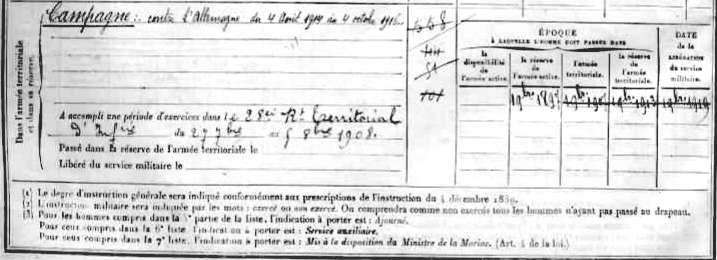 Campagne : contre l'Allemagne du 4 Août 1914 au 4 octobre 1916
558
51
101
Dans l'armée territoriale
et dans sa réserve.
A accompli une période d'exercices dans le 28ei Rt Territorial
d'Infie du 27 7bre au 5 8bre 1908.
Passé dans la réserve de l'armée territoriale le
Libéré du service militaire le
ÉPOQUE
À LAQUELLE L'HOMME DOIT PASSER DANS
la
disponibilité
de
l'armée active.
la réserve
de
l'armée active.
l'armée
territoriale.
la réserve
de
l'armée
territoriale.
DATE
de la
LIBÉRATION
du service
militaire.
1 9bre 1897
1 9bre 1913
1 9bre 1919
(1) Le degré d'instruction générale sera indiqué conformément aux prescriptions de l'instruction du 4 décembre 1889.
(2) L'instruction militaire sera indiquée par les mots : exercé ou non exercé. On comprendra comme non exercés tous les hommes n'ayant pas passé au drapeau.
(3) Pour les hommes compris dans la 5e partie de la liste, l'indication à porter est : Ajourné.
Pour ceux compris dans la 6e liste, l'indication à porter est : Service auxiliaire.
Pour ceux compris dans la 7e liste, l'indication à porter est : Mis à la disposition du Ministre de la Marine. (Art. 4 de la loi.)